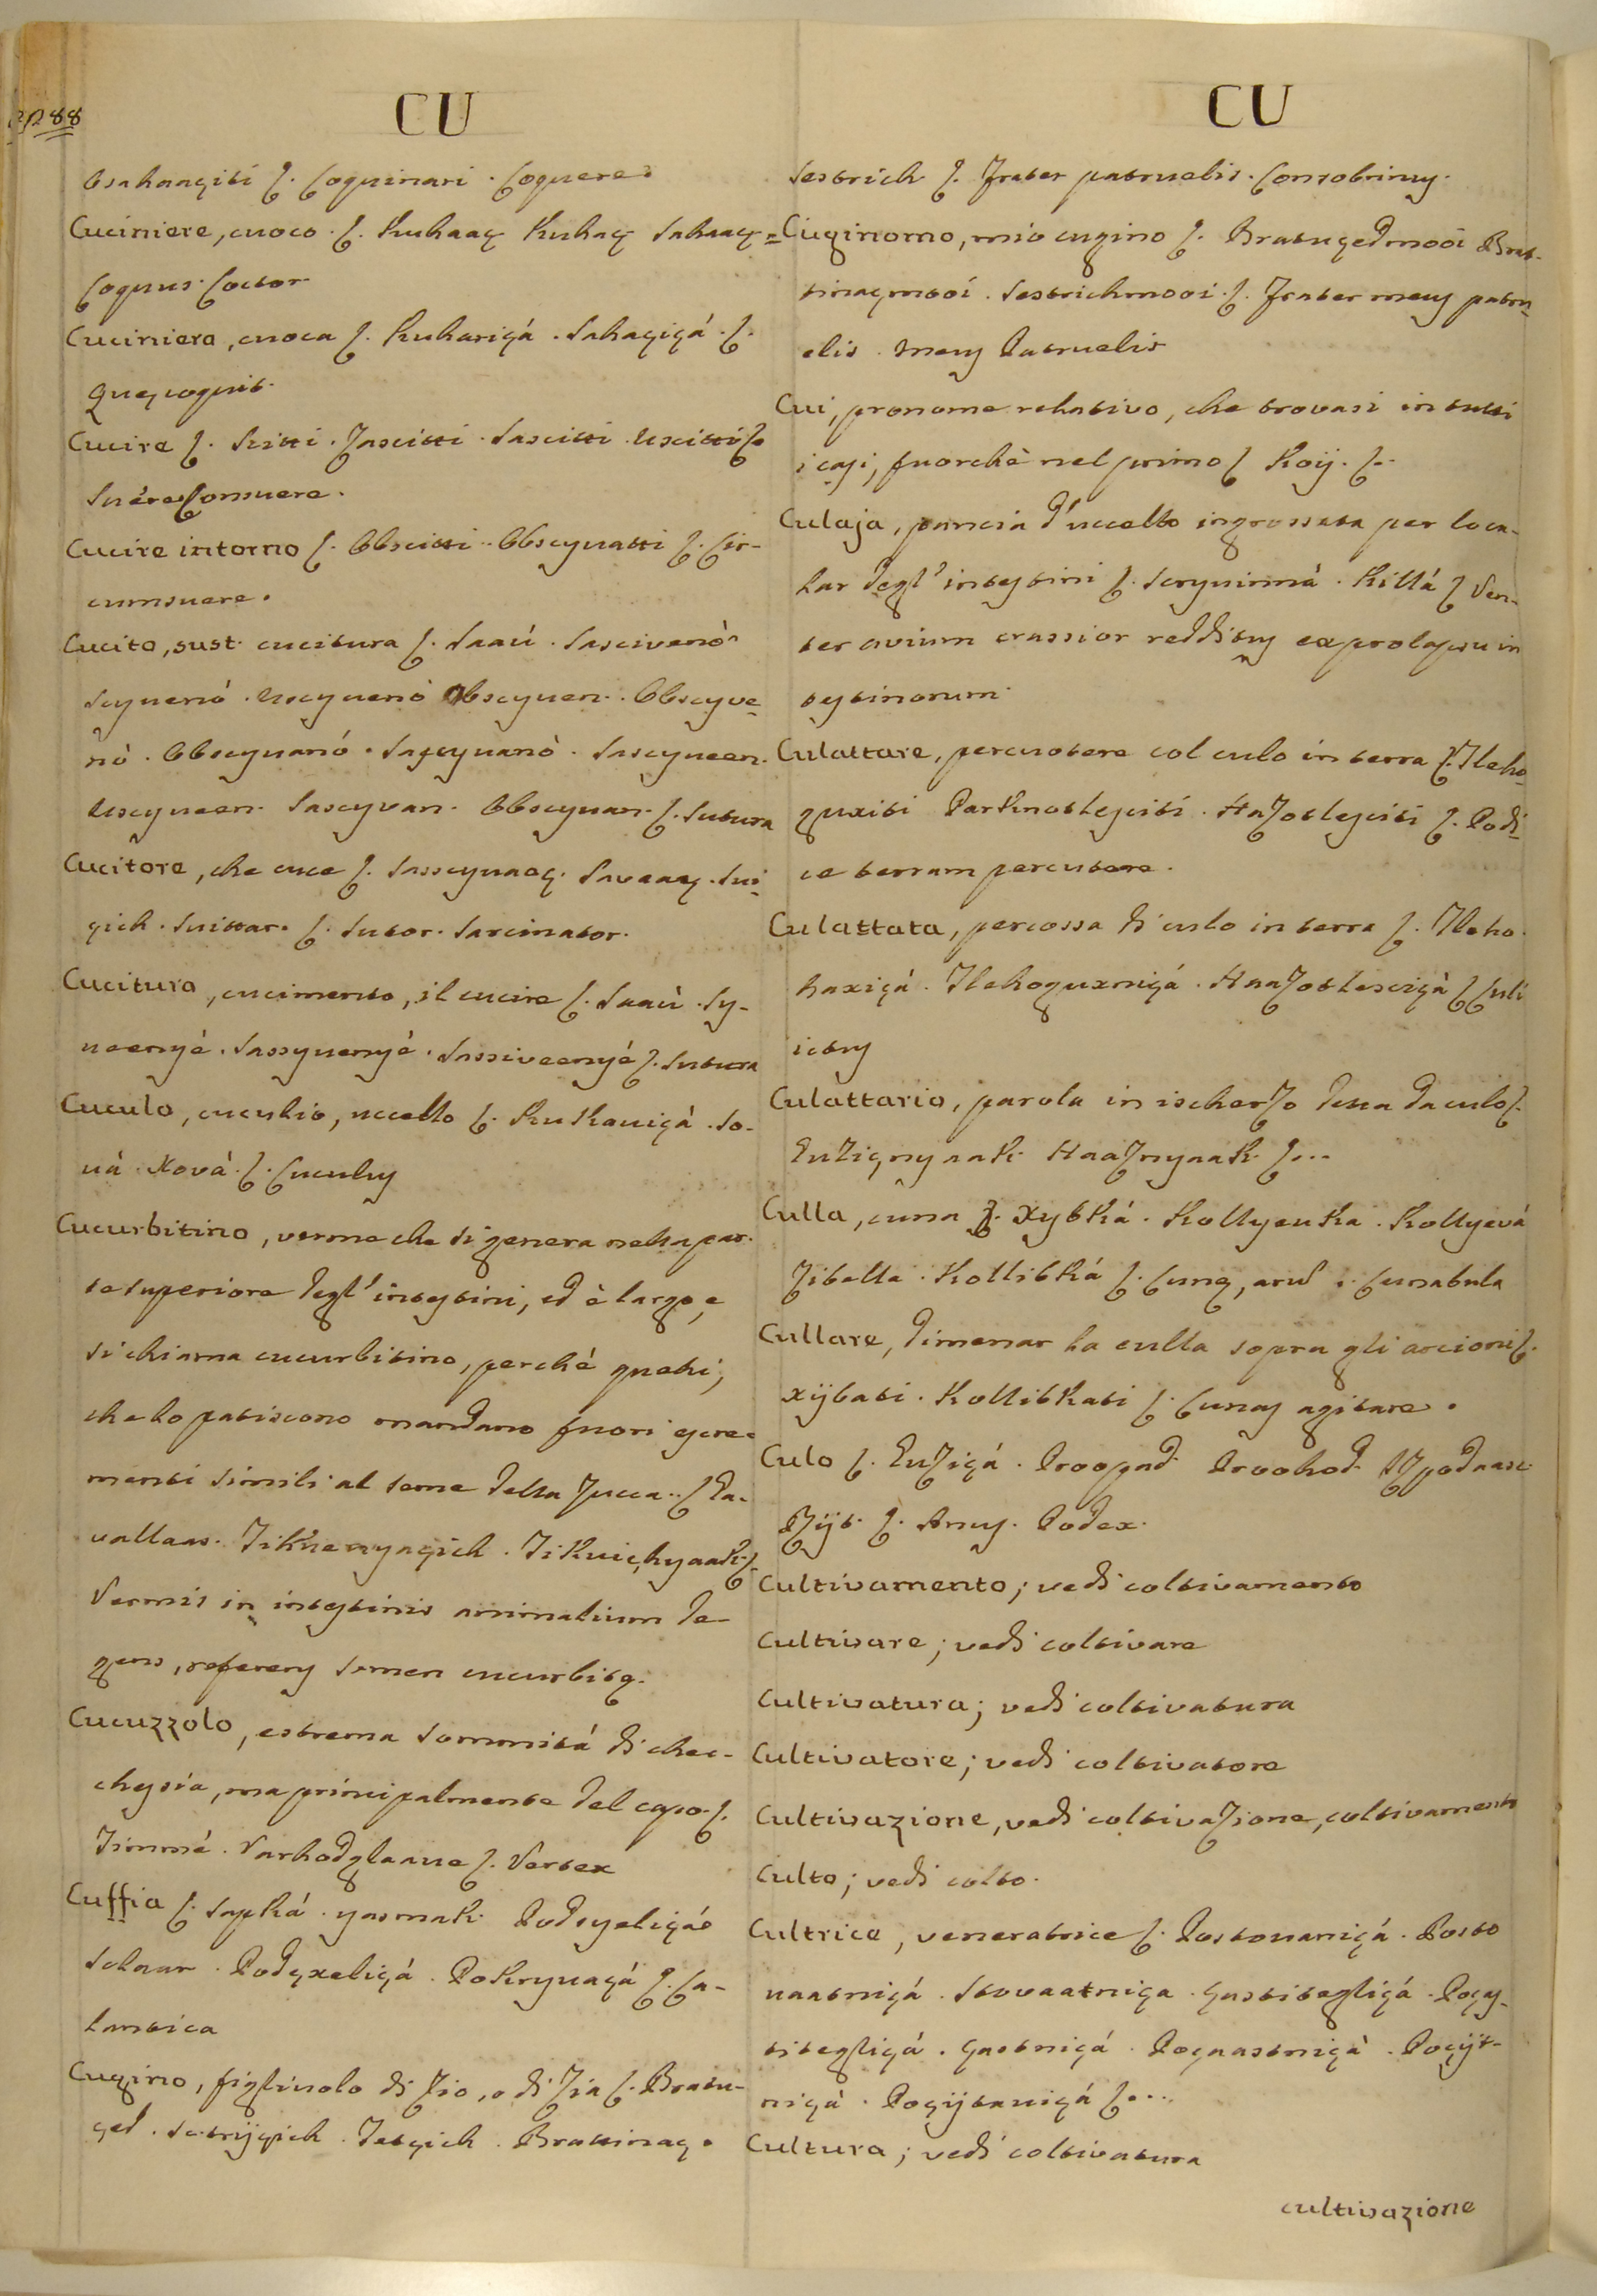 CU
Osahaaçiti ſ. Coquinari. Coquere.
Cuciniere, cuoco. ſ. Kuhaaç Kuhaç Sahaaç.
Coquus. Coctor
Cuciniera, cuoca ſ. Kuhariçá. Sahaçiçá. ſ.
Quę coquit.
Cucire ſ. Scitti. Zascitti. Sascitti. Uscitti ſ.
Suére Consuere.
Cucire intorno ſ. Obscitti. Obscyvatti ſ. Cir-
cumsuere.
Cucito, sust. cucitura ſ. Saaú. Sascivenò
Scyvenó. Uscyvenò Obscyven. Obscyve-
nò. Obscyvanó. Sascyvanò. Sascyveen.
Uscyveen. Sascyvan. Obscyvan. ſ. Sutura
Cucitore, che cuce ſ. Sasscyvaoç. Savaaç. Sui-
çich. Suittar. ſ. Sutor. Sarcinator.
Cucitura, cucimento, il cucire ſ. Saaù. Sy-
veenyé. Sassyvenyé. Sassiveenyé ſ. Sutura
Cuculo, cuculio, uccello ſ. Kukaviçà. So-
vá. Xová. ſ. Cuculus
Cucurbitino, verme che si genera nella par-
te superiore degl' intestini, ed è largo, e
si chiama cucurbitino, perché quelli,
che lo patiscono mandano fuori escre-
menti simili al seme della zucca. ſ Ea-
vallaas. Tikvenyaçich. Tikviçhyaak ſ.
Vermis in intestinis animalium de-
gens, referens semen cucurbitę.
Cucuzzolo, estrema sommitá di chec-
chesia, ma principalmente del capo. ſ.
Timmé. Varhodglaave ſ. Vertex
Cuffia ſ. Sapká. yasmak. Podsyeliçá
Schaar. Podçxeliçá. Pokryvaçá ſ. Ca-
lantica
Cugino, figliuolo di zio, o di zia ſ. Bratu-
çed. Sestrijçich. Tetçich. Brattinaç.
CU
Sestrich ſ. Frater patruelis. Consobrinus.
Cuginomo, mio cugino ſ. Bratuçedmooi Brat-
tinaçmooi. Sestrichmooi. ſ. Frater meus patru-
elis. Meus Patruelis
Cui, pronome relativo, che trovasi in tutti
i casi, fuorchè nel primo ſ Koij. ſ..
Culaja, pancia d'uccello ingrossata per lo ca-
lar degl' intestini ſ. Scryvinmá. Killá ſ Ven-
ter avium crassior redditus ex prolapsu in
testinorum.
Culattare, percuotere col culo in terra ſ. Tleho-
guxiti Parknotlesciti. Hazotlesciti ſ. Podi-
ce terram percutere.
Culattata, percossa di culo in terra ſ. Tleho-
haxiçá. Tlehoguxniçá. Haazotlesciçà ſ Culi
ictus
Culattario, parola in ischerzo detta da culo ſ.
Enziçnynak. Haaznyaak ſ...
Culla, cuna ſ. Xybká. Kollyevka. Kollyevá
Zibella. Kollibká ſ. Cunę, arum. Cunabula
Cullare, dimenar la culla sopra gli arcioni ſ.
xijbati. Kollibkati ſ. Cunas agitare.
Culo ſ. Enziçá. Proopad Proohod. Uzpodnase
Rzijt. ſ. Anus. Podex.
Cultivamento; vedi coltivamento
Cultivare; vedi coltivare
Cultivatura; vedi coltivatura
Cultivatore; vedi coltivatore
Cultivazione, vedi coltivazione, coltivamento
Culto; vedi colto.
Cultrice, veneratrice ſ. Postovaniçá. Posto
vaatniçá. Stovaatniça. Çastitegliçá. Poças-
titegliçá. Çastniçá. Poçaastniçà. Poçijt-
niçà. Poçijtavniçá ſ...
Cultura; vedi coltivatura
cultivazione